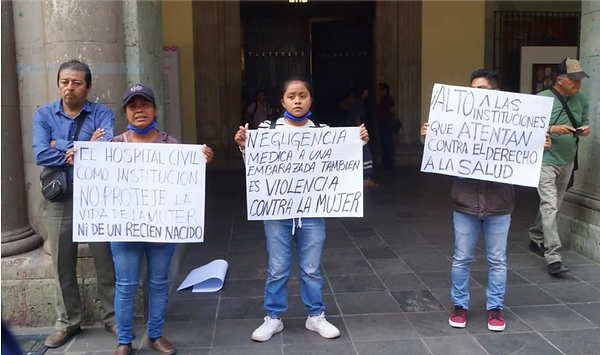 EL HOSPITAL CIVIL
COMO INSTITUCION
NO PROTEJE LA
VIDA DE LA MUJER
NI DE UN RECIEN NACIDO
NEGLIGENCIA
MEDICA A UNA
EMBARAZADA TAMBIEN
ES VIOLENCIA
CONTRA LA MUJER
¡ALTO A LAS
INSTITUCIONES
QUE ATENTAN
CONTRA EL DERECHO
A LA SALUD